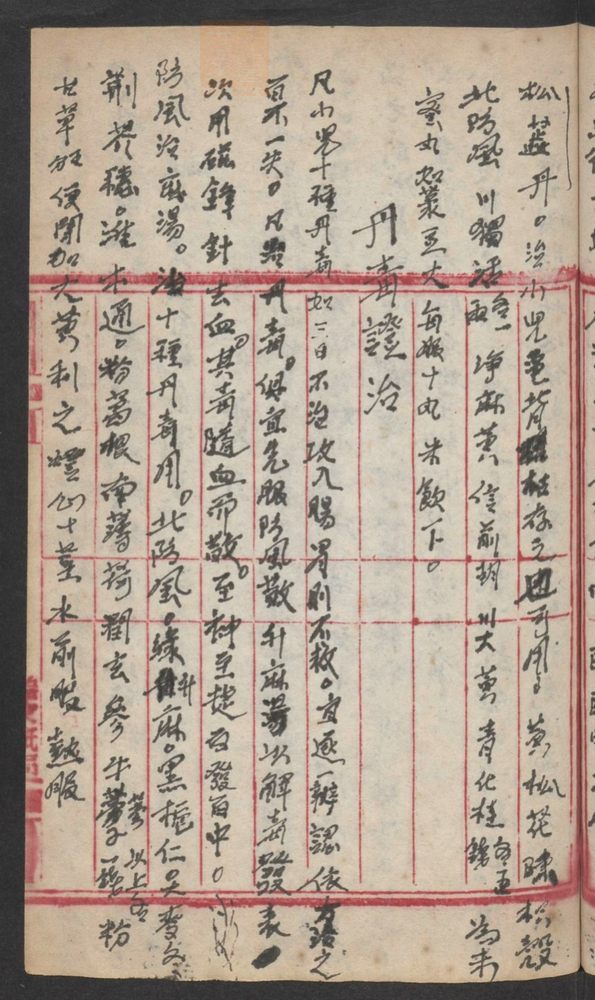 松蕊丹。治小兒龜背 枯存之 可用 黃松花 枳殼
北防風 川獨活各一兩 淨麻黃 信前胡 川大黃 青化桂各五錢 為末
蜜丸如黍豆大 每服十丸 米飲下。
丹毒證治
凡小兒十種丹毒如三日不治攻入腸胃則不救。宜逐一辨認依方治之
百不一失。凡 丹毒。俱宜先服防風散升麻湯以解毒發表
次用磁鋒針去血。其毒隨血而散。至神至捷百發百中。
防風升麻湯。治十種丹毒用。北防風。綠升麻。黑梔仁。大麥冬
荊芥穗。淮木通。粉葛根 南薄荷 潤玄參 牛蒡子 以上各一錢 粉
甘草 便閉加大黃利之 燈心十莖水前服 熱服